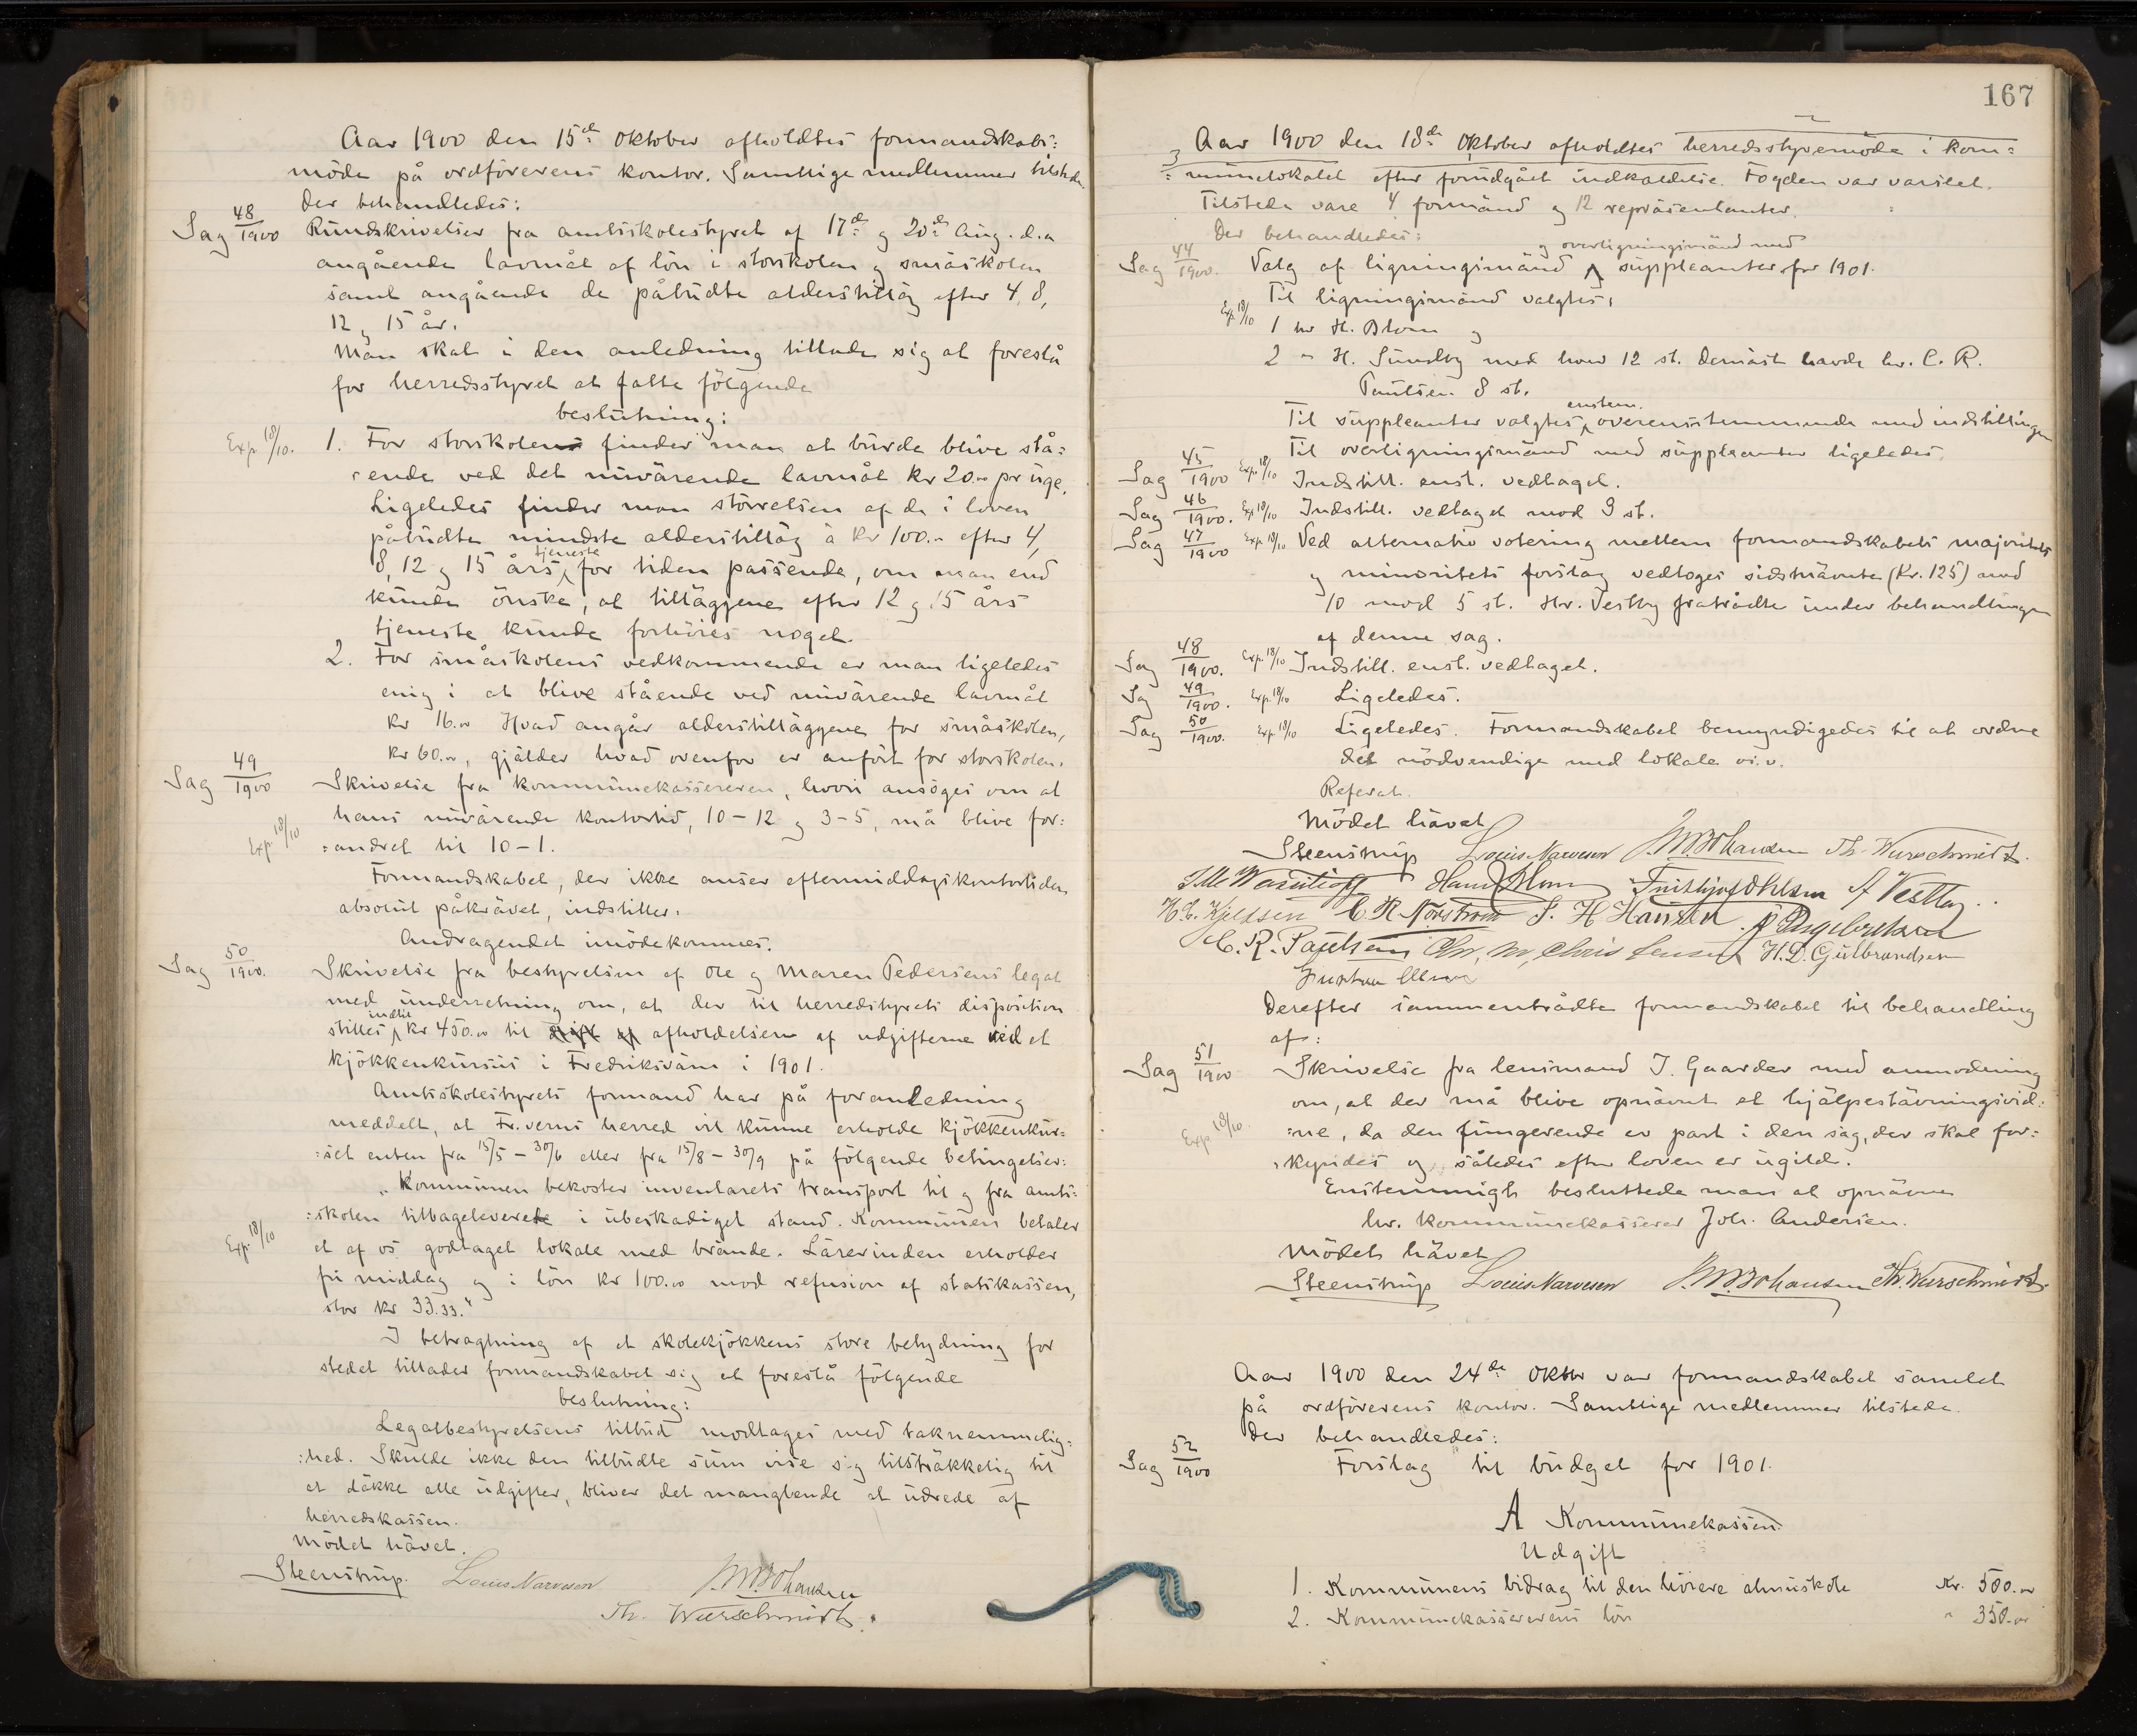 Aar 1900 den 15de Oktober afholdtes formandskabs:
möde på ordförerens kontor. Samtlige medlemmer tilstede.
Der behandledes:
Sag 48/1900 Rundskrivelser fra amtsskolestyret af 17de og 20de Aug. d.a
angående lavmål af lön i storskolen og småskolen
samt angående de påbudte alderstillæg efter 4, 8,
12 og 15 år.
Man skal i den anledning tillade sig at foreslå
for herredsstyret at fatte fölgende
beslutning:
Exp. 18/10. 1. For storskolens finder man at burde blive stå:
:ende ved det nuværende lavmål kr 20.00 pr uge.
Ligeledes finder man störrelsen af de i loven
påbudte mindste alderstillæg à kr 100.- efter 4,
8, 12 og 15 års tjeneste for tiden passende, om man end
kunde önske, at tillæggene efter 12 og 15 års
tjeneste kunde forhöies noget.
2. For småskolens vedkommende er man ligeledes
enig i at blive stående ved nuværende lavmål
kr 16.00 Hvad angår alderstillæggene for småskolen,
kr 60.00, gjælder hvad ovenfor er anfört for storskolen.
Sag 49/1900 Skrivelse fra kommunekassereren, hvori ansöges om at
hans nuværende kontortid, 10-12 og 3-5, må blive for:
Exp. 18/10 :andret til 10-1.
Formandskabet, der ikke anser eftermiddagskontortiden
absolut påkrævet, indstiller:
Andragendet imödekommes.
Sag 50/1900. Skrivelse fra bestyrelsen af Ole og Maren Pedersens legat
med underretning om, at der til herredsstyrets disposition
stilles indtil kr 450.00 til drift af afholdelsen af udgifterne ved et
kjökkenkursus i Fredriksværn i 1901.
Amtsskolestyrets formand har på foranledning
meddelt, at Fr.verns herred vil kunne erholde kjökkenkur:
:set enten fra 15/5 - 30/6 eller fra 15/8 - 30/9 på fölgende betingelser:
"Kommunen bekoster inventarets transport til og fra amts:
:skolen tilbageleverete i ubeskadiget stand. Kommunen betaler
Exp. 18/10 et af os godtaget lokale med brænde. Lærerinden erholder
fri middag og i lön kr 100.00 mod refusion af statskassen,
stor kr 33.33."
I betragtning af et skolekjökkens store betydning for
stedet tillader formandskabet sig at foreslå fölgende
beslutning:
Legatbestyrelsens tilbud modtages med taknemmelig:
:hed. Skulde ikke den tilbudte sum vise sig tilstrækkelig til
at dække alle udgifter, bliver det manglende at udrede af
herredskassen.
Mödet hævet.
Steenstrup. Louis Narvesen J.M. Johansen
Th. Wurschmidt.
167
Aar 1900 den 18de Oktober afholdtes herredsstyremöde i kom:
:munelokalet efter forudgået indkaldelse. Fogden var varslet.
Tilstede vare 4 formænd og 12 repræsentanter.
Der behandledes:
og overligningsmænd med
Sag 44/1900. Valg af ligningsmænd suppleanter for 1901.
Til ligningsmænd valgtes:
Exp. 18/10 1 hr H. Blom og
2 " H. Sundby med hver 12 st. dernæst havde hr. C. R.
Paulsen 8 st.
Til suppleanter valgtes enstem. overensstemmende med indstillingen
Til overligningsmænd med suppleanter ligeledes.
Sag 45/1900 Exp. 18/10 Indstill. enst. vedtaget.
Sag 46/1900. Exp 18/10 Indstill. vedtaget mod 3 st.
Sag 47/1900 Exp 18/10 Ved alternativ votering mellem formandskabets majoritets
og minoritets forslag vedtoges sidstnævnte (kr. 125) med
10 mod 5 st. Hr. Vestby fratrådte under behandlingen
af denne sag.
Sag 48/1900. Exp. 18/10 Indstill. enst. vedtaget.
Sag 49/1900. Exp. 18/10 Ligeledes.
Sag 50/1900. Exp 18/10 Ligeledes. Formandskabet bemyndigedes til at ordne
det nödvendige med lokale o.s.v.
Referat.
Mödet hævet
Steenstrup Louis Narvesen J.M. Johansen Th. Wurschmidt.
Hans Blom Frithjof Ohlsen A Vestby.
H. C. Kjeldsen C. R. Norstrøm S. H Hansen. P. Engebretsen
C. R. Paulsen Chr. M. Christensen H. D. Gulbrandsen
Derefter sammentrådte formandskabet til behandling
af:
Sag 51/1900 Skrivelse fra lensmand J. Gaarder med anmodning
om, at der må blive opnævnt et hjælpestævningsvid:
Exp. 18/10. :ne, da den fungerende er part i den sag, der skal for:
:kyndes og således efter loven er ugild.
Enstemmigh besluttede man at opnævne
hr. kommunekasserer Joh. Andersen.
Mödet hævet
Steenstrup Louis Narvesen J.M. Johansen Th. Wurschmidt.
Aar 1900 den 24de Oktbr var formandskabet samlet
på ordförerens kontor. Samtlige medlemmer tilstede.
Der behandledes:
Sag 52/1900 Forslag til budget for 1901.
A Kommunekassen.
Udgift
1. Kommunens bidrag til den höiere almuskole Kr. 500.00
2. Kommunekassererens lön " 350.00